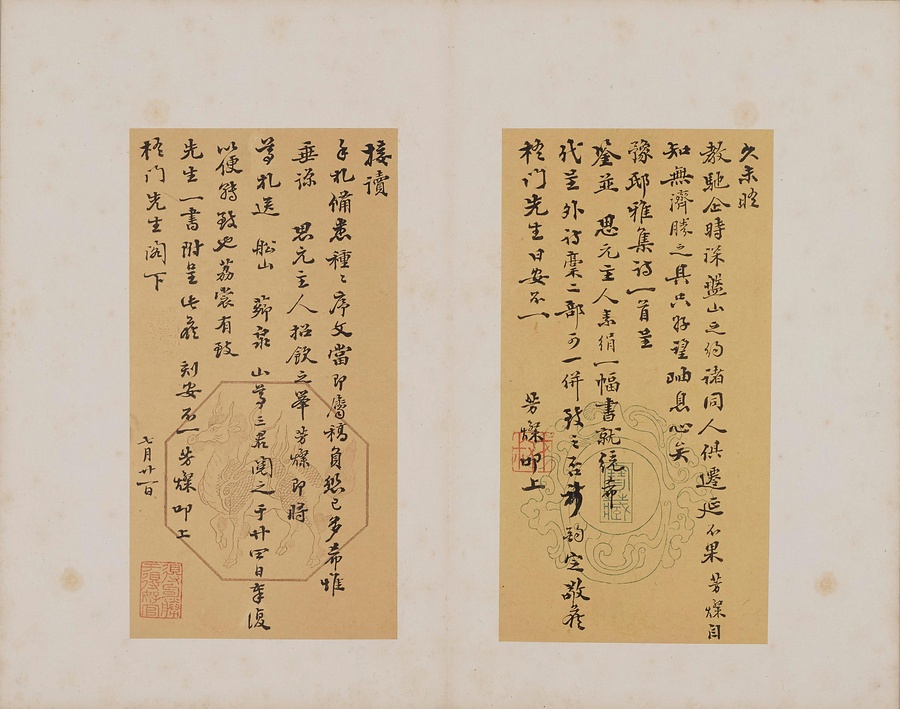 久未晤
教馳企時深盤山之約諸同人俱遷延不果芳燦自
知無濟勝之具只好望岫息心矣
豫邸雅集詩一首呈
鑒並 思元主人素絹一幅書就統希
代呈外詩稾二部可一併致之否 韵定敬候
梧門先生日安不一
芳燦叩上
接讀
手札備悉種種序文當即屬稿負愆已多希惟
垂諒 思元主人招飲之舉芳燦即將
尊札送 船山 薌泉 山尊三君閱之于廿四日奉復
以便轉致也荔裳有致
先生一書附呈此候 刻安不一芳燦叩上
梧門先生閣下
七月廿一日